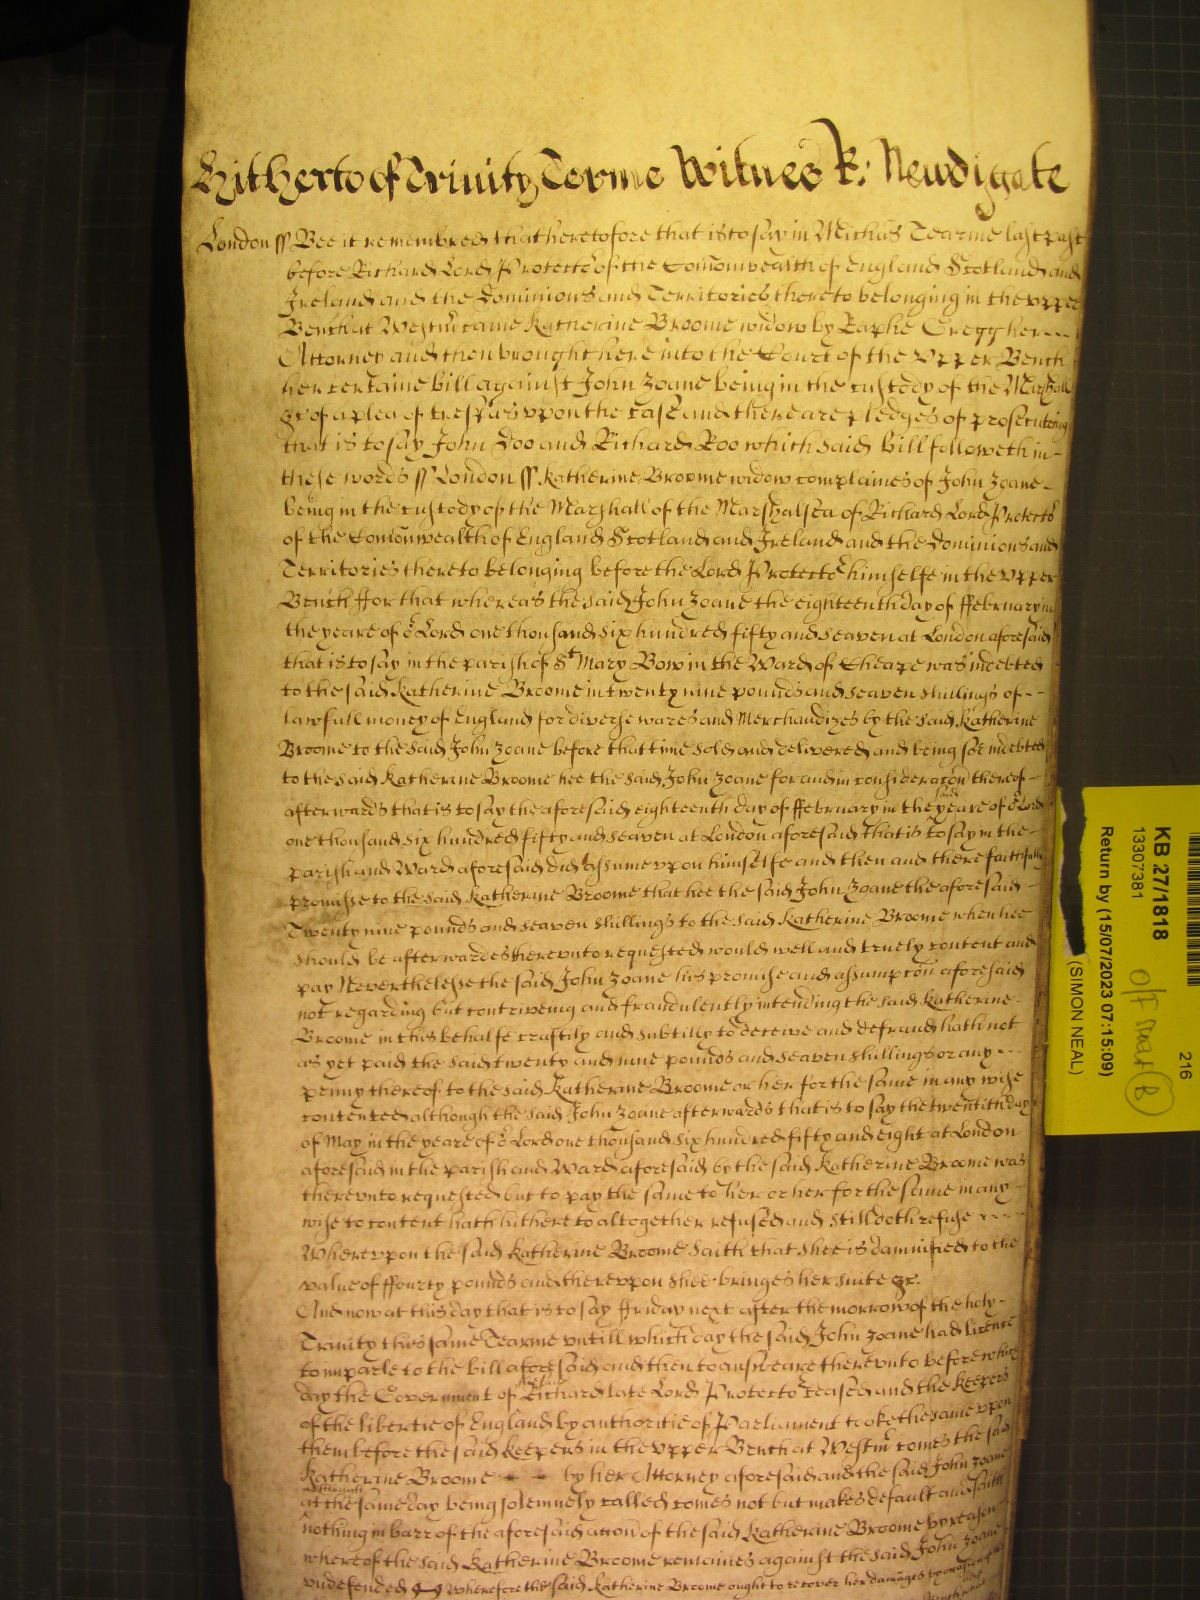 Hitherto of Trinity Terme Witnes R: Newdigate
London ss Bee it remembred that heretofore that is to say in Michas Tearme last past
before Richard Lord Protector of the Comonwealth of England Scotland and
Ireland and the Dominions and Territories thereto belonging in the upper
Bench at Westmr came Katherine Broome widow by Raphe Gregg her
Attorney and then brought here into the Court of the Upper Bench
her certaine bill against John Zoane being in the custody of the Marshall
&c of a plea of trespas upon the case and there are pledges of prosecuting
that is to say John Doo and Richard Roo which said bill followeth in
these words ss London ss Katherine Broome widow complaines of John Zoane
being in the custody of the Marshall of the Marshalsea of Richard Lord Protector
of the Comonwealth of England Scotland and Ireland and the Dominions and
Territories thereto belonging before the Lord Protector himselfe in the Upper
Bench ffor that whereas the said John Zoane the eighteenth day of ffebruary in
the yeare of or Lord one thousand six hundred fifty and seaven at London aforesaid
that is to say in the parish of St Mary Bow in the Ward of Cheape was indebted
to the said Katherine Broome in twenty nine pounds and seaven shillings of
lawfull money of England for diverse wares and Merchandizes by the said Katherine
Broome to the said John Zoane before that time sold and delivered and being soe indebted
to the said Katherine Broome hee the said John Zoane for and in consideracon thereof
afterwards that is to say the aforesaid eighteenth day of ffebruary in the said yeare of or Lord
one thousand six hundred fifty and seaven at London aforesaid that is to say in the
parish and Ward aforesaid did assume upon himselfe and then and there faithfully
promise to the said Katherine Broome that hee the said John Zoane the aforesaid
Twenty nine pounds and seaven shillings to the said Katherine Broome when hee
should be afterwardes thereunto requested would well and truely content and
pay Neverthelesse the said John Zoane his promise and assumpcon aforesaid
not regarding but contriveing and fraudulently intending the said Katherine
Broome in this behalfe craftily and subtilly to deceive and defraud hath not
as yet paid the said twenty and nine pounds and seaven shillings or any
penny thereof to the said Katherine Broome or her for the same in any wise
contented although the said John Zoane afterwards that is to say the twentith day
of May in the yeare of or Lord one thousand six hundred fifty and eight at London
aforesaid in the parish and Ward aforesaid by the said Katherine Broome was
thereunto requested but to pay the same to her or her for the same in any
wise to content hath hithereto altogether refused and still doth refuse
Whereupon the said Katherine Broome saith that shee is damnified to the
value of ffourty pounds and thereupon shee bringes her suite &c.
And now at this day that is to say ffriday next after the morrow of the holy
Trinity this same Tearme untill which day the said John Zoane had licence
to imparle to the bill aforesaid and then to answeare thereunto before which
day the Government of Richard late Lord Protector ceased and the Keepers
of the libertie of England by authoritie of Parliament tooke the same upon
them before the said keepers in the Upper Bench at Westmr comes the said
Katherine Broome by her Attorney aforesaid and the said John Zoane
although at the same day being solemnely called comes not but makes default and saith
nothing in barr of the aforesaid accon of the said Katherine Broome by reason
whereof the said Katherine Broome remaines against the said John Zoane
undefended Wherefore the said Katherine Broome ought to recover her damages
KB 27/1818
13307381
Return by (15/07/2023 07:15:09)
(SIMON NEAL)
216